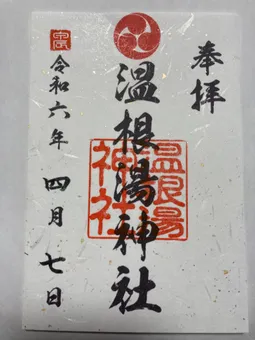 奉拝
温根湯神社
温根湯
神社
令和六年 四月 七日